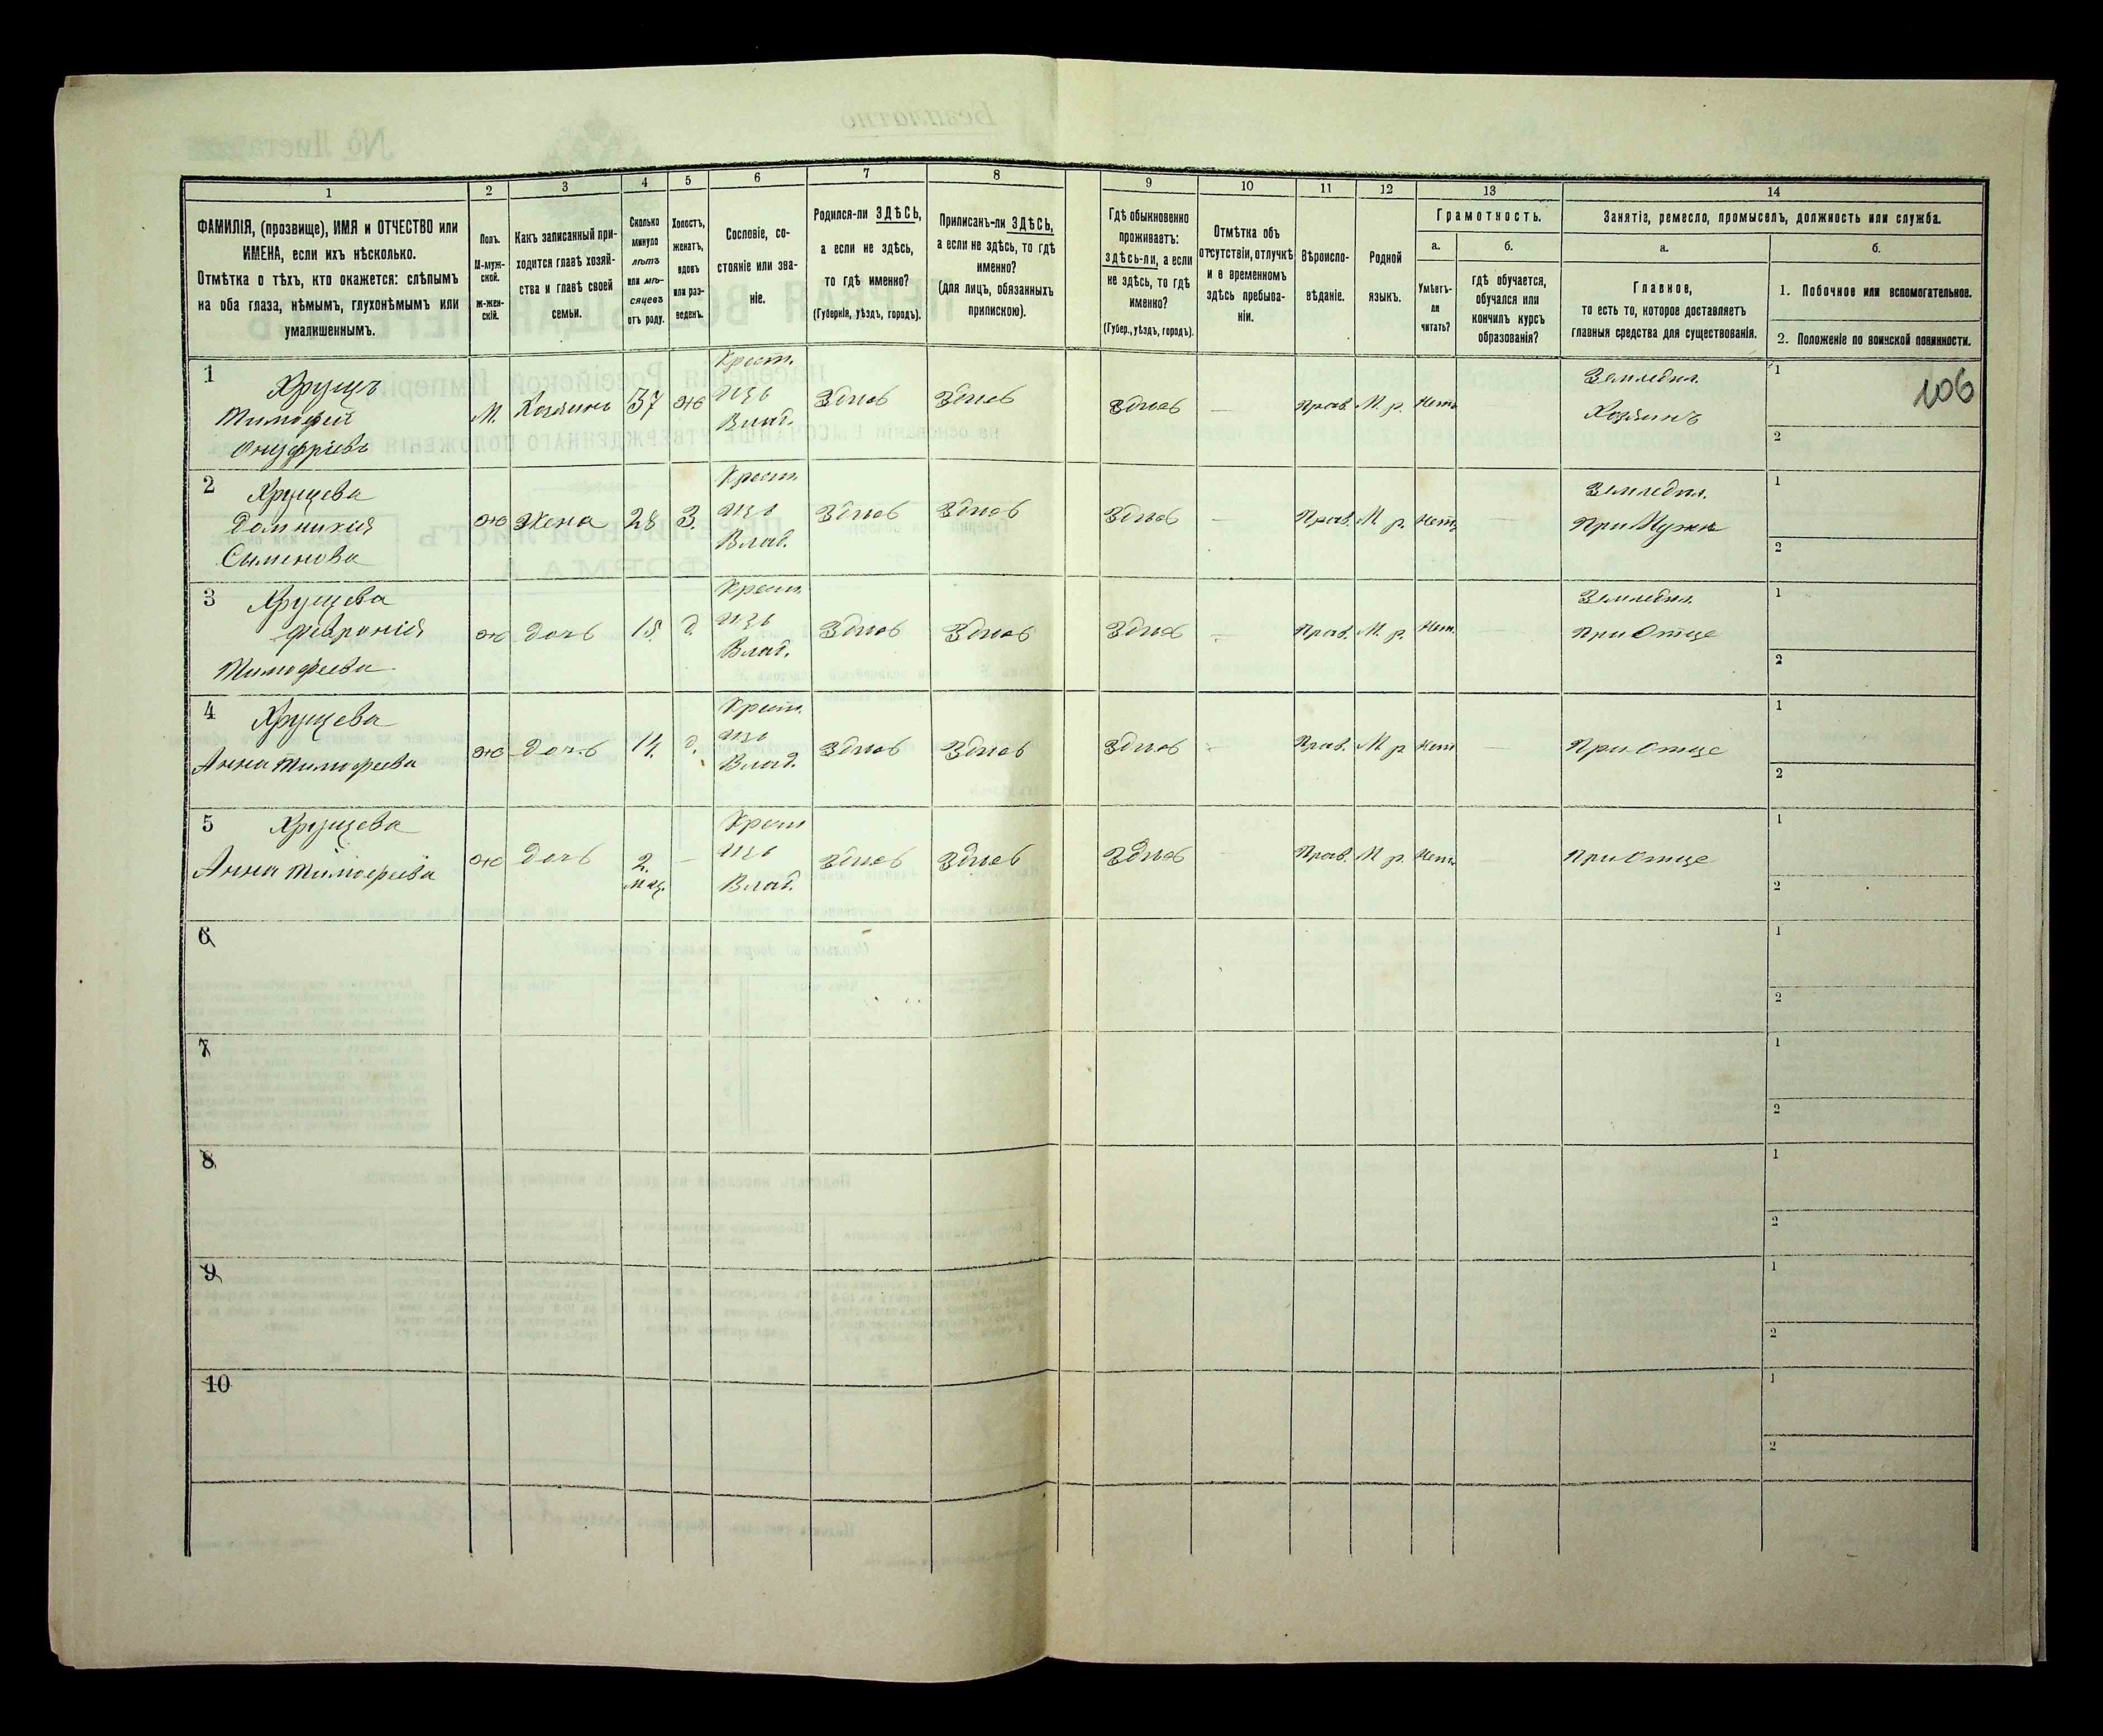 1
2
3
4
5
6
7
8
9
10
11
12
13
14
ФАМИЛІЯ, (прозвище), ИМЯ и ОТЧЕСТВО или
ИМЕНА, если ихъ нѣсколько.
Отмѣтка о тѣхъ, кто окажется: слѣпымъ
на оба глаза, нѣмымъ, глухонѣмымъ или
умалишеннымъ.
Полъ.
М-муж-
ской.
ж-жен-
скій.
Какъ записанный при-
ходится главѣ хозяй-
ства и главѣ своей
семьи.
Сколько
минуло
лѣтъ
или мѣ-
сяцевъ
отъ роду.
Холостъ,
женатъ,
вдовъ
или раз-
веденъ.
Сословіе, со-
стояніе или зва-
ніе.
Родился-ли ЗДѢСЬ,
а если не здѣсь,
то гдѣ именно?
(Губернія, уѣздъ, городъ).
Приписанъ-ли ЗДѢСЬ,
а если не здѣсь, то гдѣ
именно?
(для лицъ, обязанныхъ
припискою).
Гдѣ обыкновенно
проживаетъ:
здѣсь-ли, а если
не здѣсь, то гдѣ
именно?
(Губер., уѣздъ, городъ).
Отмѣтка объ
отсутствіи, отлучкѣ
и в временномъ
здѣсь пребыва-
ніи.
Вѣроиспо-
вѣданіе.
Родной
языкъ.
Грамотность.
а.
Умѣетъ-
ли
читать?
б.
гдѣ обучается,
обучался или
кончилъ курсъ
образованія?
Занятіе, ремесло, промыселъ, должность или служба.
а.
Главное,
то есть то, которое доставляетъ
главныя средства для существованія.
б.
1. Побочное или вспомогательное.
2. Положеніе по воинской повинности.
106
1 Хрущъ
Тимофей
Онуфріевъ
М. Хозяинъ 37 ж Крест.
изъ
Влад. Здѣсь Здѣсь Здѣсь — Прав. М. р. Нетъ Земледѣл.
Хозяинъ 1
2
2 Хрущева
Домникия
Сыменова
ж Жена 28 З. Крест.
изъ
Влад. Здѣсь Здѣсь Здѣсь — Прав. М р. Нетъ — Земледѣл.
При Мужѣ 1
2
3 Хрущева
Февронія
Тимофеева
ж Дочь 15 д. Крест.
изъ
Влад. Здѣсь Здѣсь Здѣсь — Прав. М. р. Нет. — Земледѣл.
При Отце 1
2
4 Хрущева
Анна Тимофеева
ж Дочь д. Крест.
изъ
Влад. Здѣсь Здѣсь Здѣсь — Прав. М р. Нет — При Отце 1
2
5 Хрущева
Анна Тимофеева
ж Дочь 2.
мец. — Крест
изъ
Влад. Здѣсь Здѣсь Здѣсь — Прав. М р. Нет. — При Отце 1
2
6 1
2
7 1
2
8 1
2
9 1
2
10 1
2